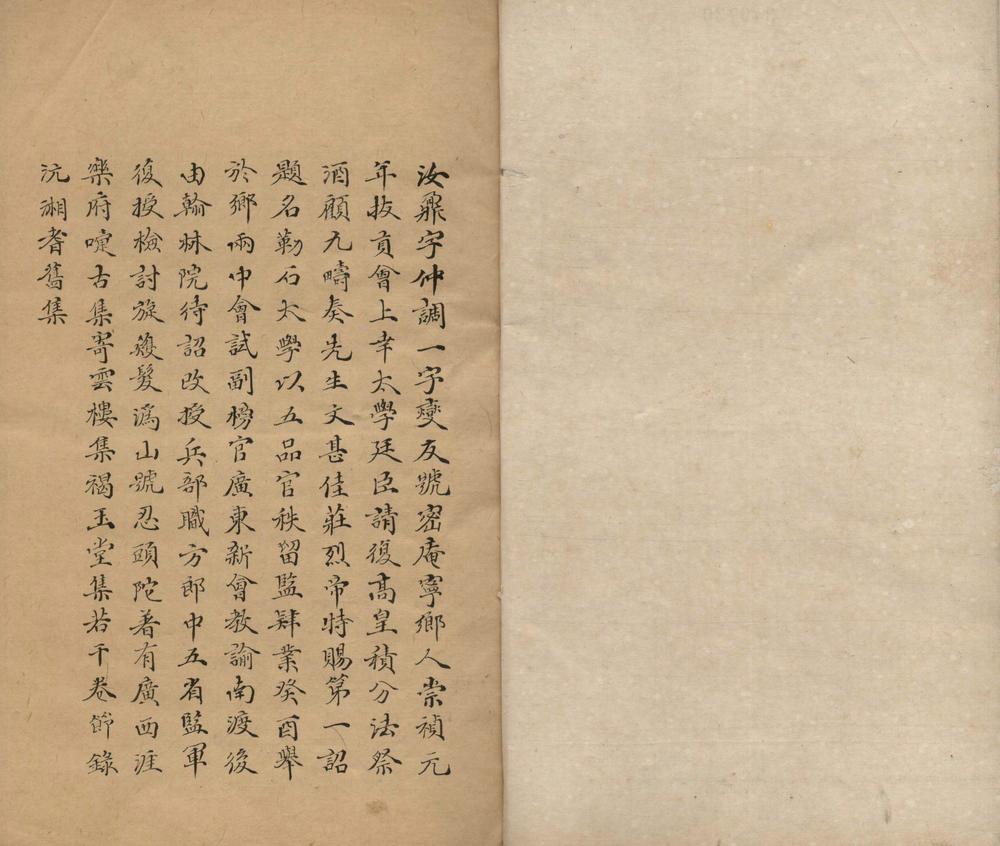 汝鼐字仲調一字燮友號密庵寧鄉人崇禎元
年拔貢會上幸太學廷臣請復高皇積分法祭
酒顧九疇奏先生文甚佳莊烈帝特賜第一詔
題名勒石太學以五品官秩留監肄業癸酉舉
於鄉兩中會試副榜官廣東新會教諭南渡後
由翰林院待詔改授兵部職方郎中五省監軍
復授檢討旋薙髮溈山號忍頭陀著有廣西涯
樂府嚏古集寄雲樓集褐玉堂集若干卷節錄
沅湘耆舊集